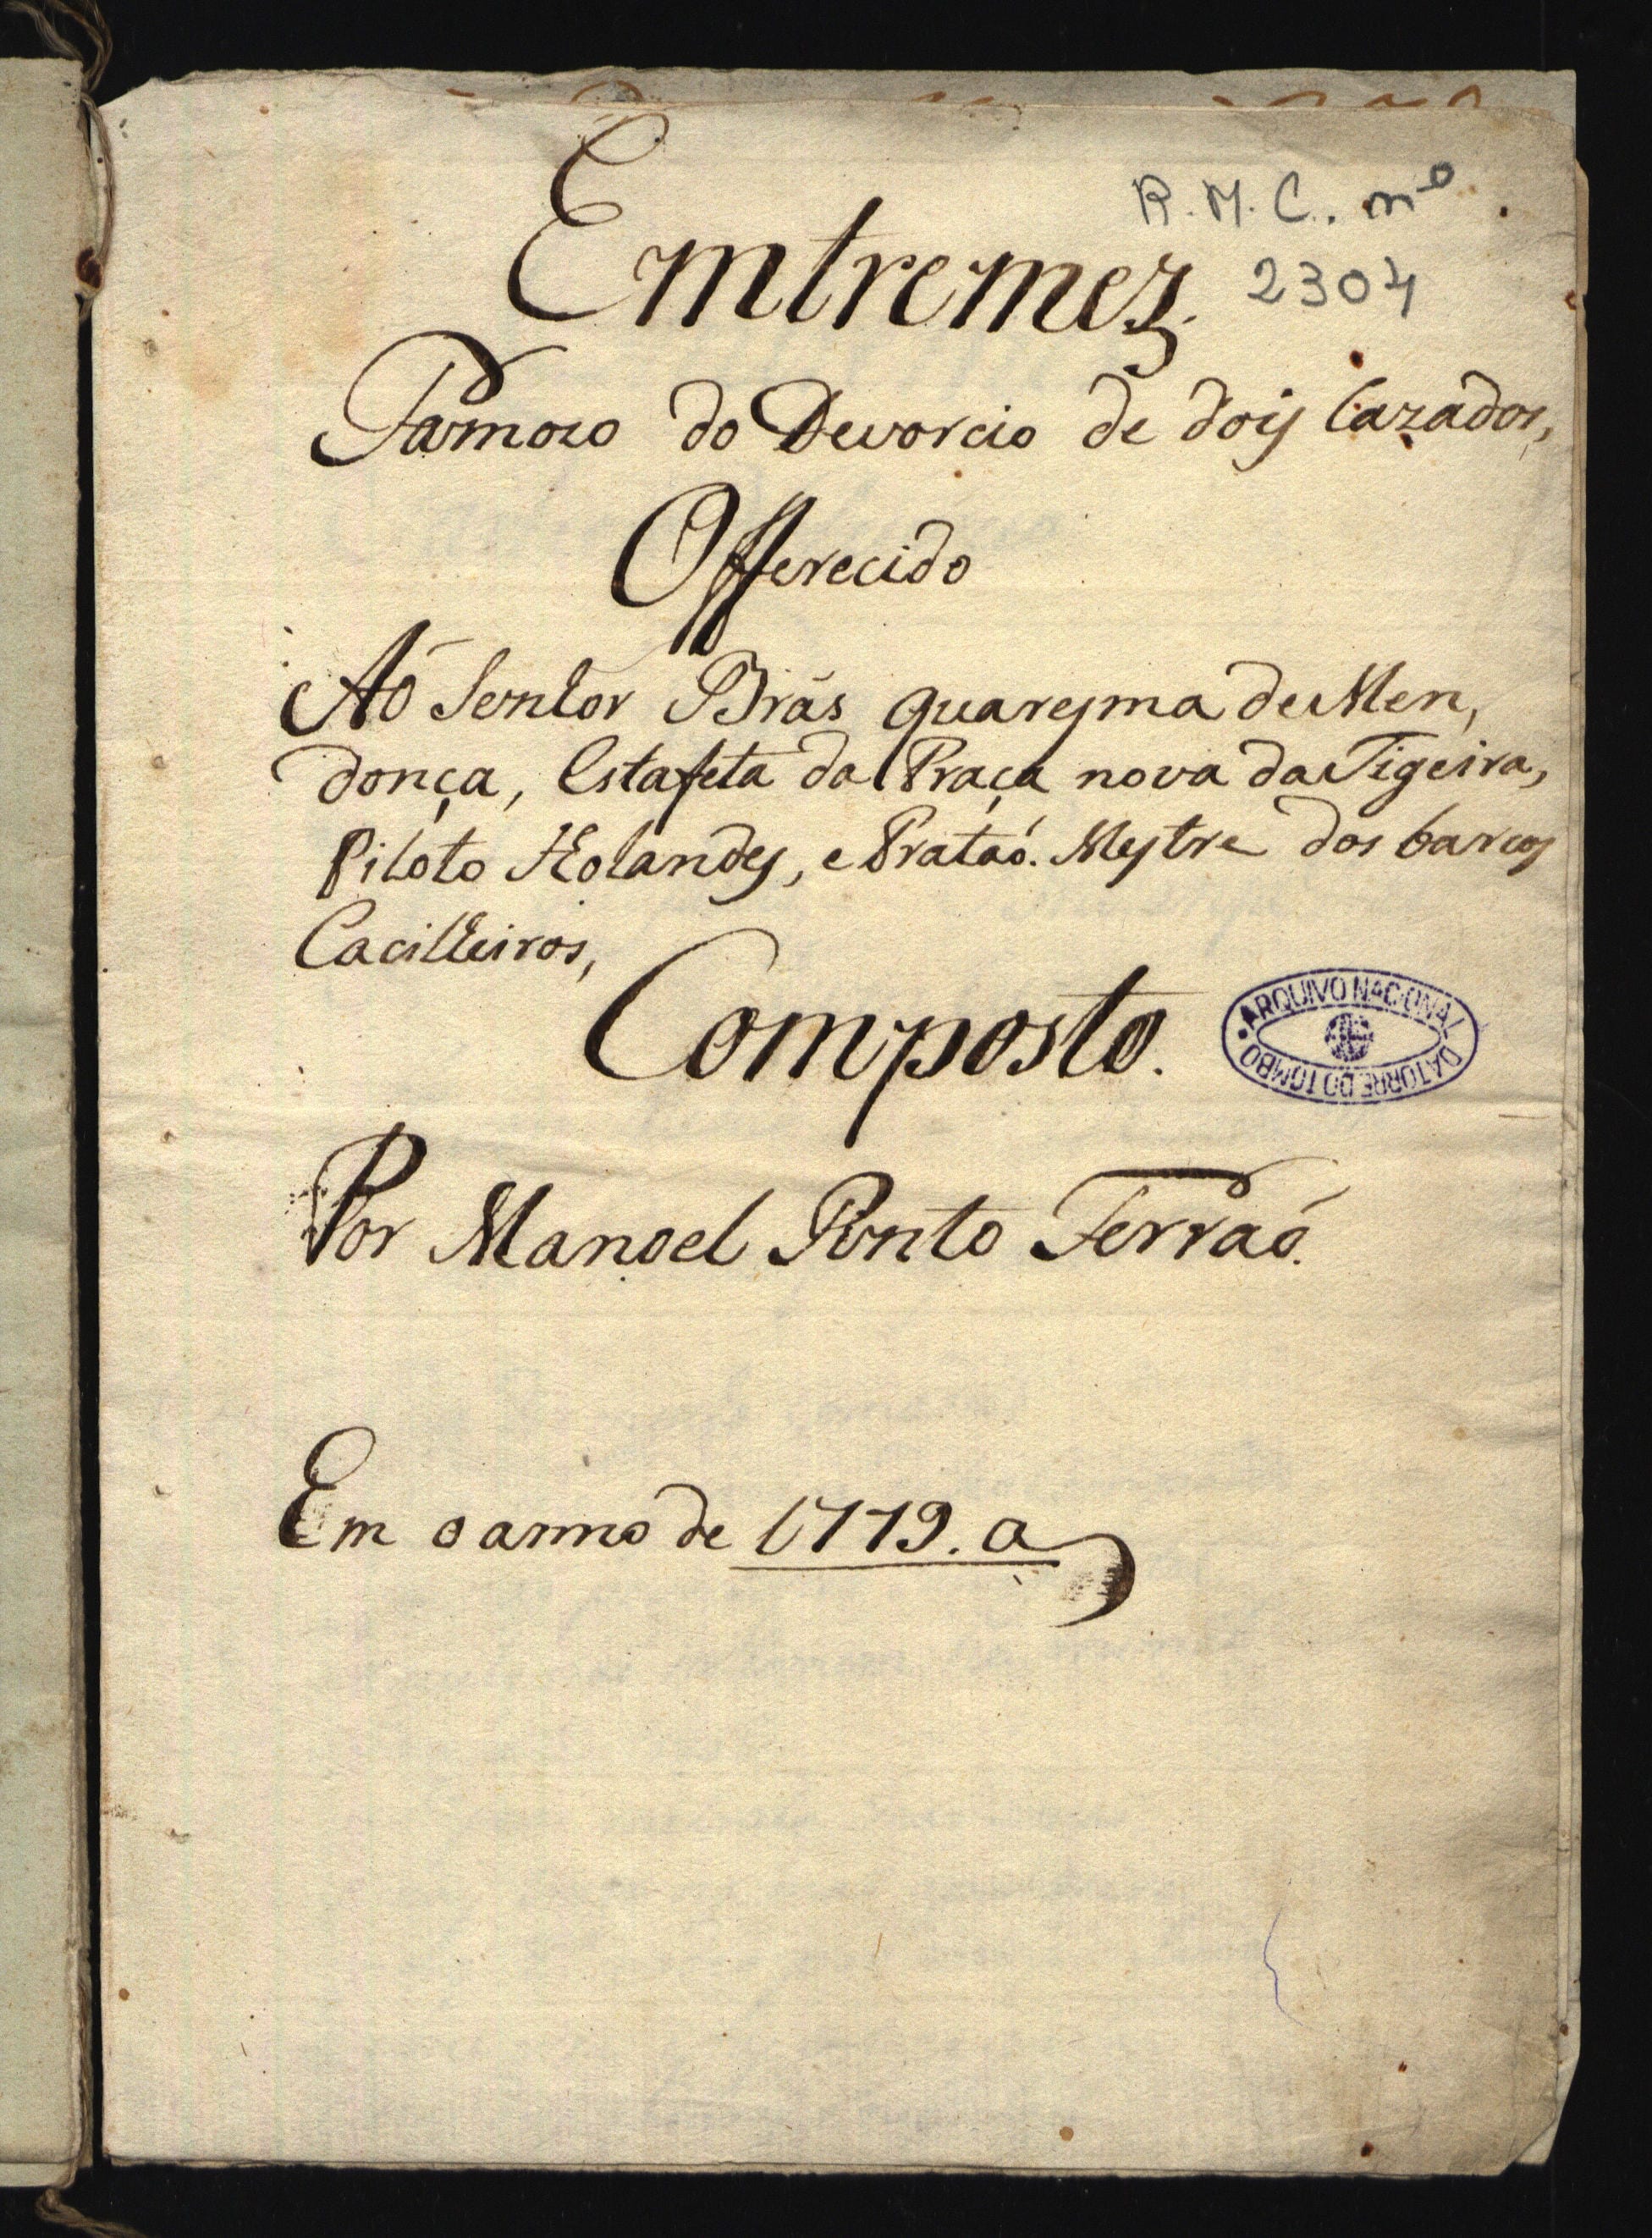 R. M. C. nº
2304
Emtremez.
Famozo do Devorcio de dois Cazados,
Offerecido
Aó Senhor Brás Quaresma de Men,
donça, Estafeta da Praça nova da Figeira,
Piloto Holandes, e Prataó. Mestre dos barcos
Cacilheiros,
Composto.
ARQUIVO NACIONAL DA TORRE DO TOMBO
Por Manoel Pinto Ferraó.
Em o anno de 1779. a